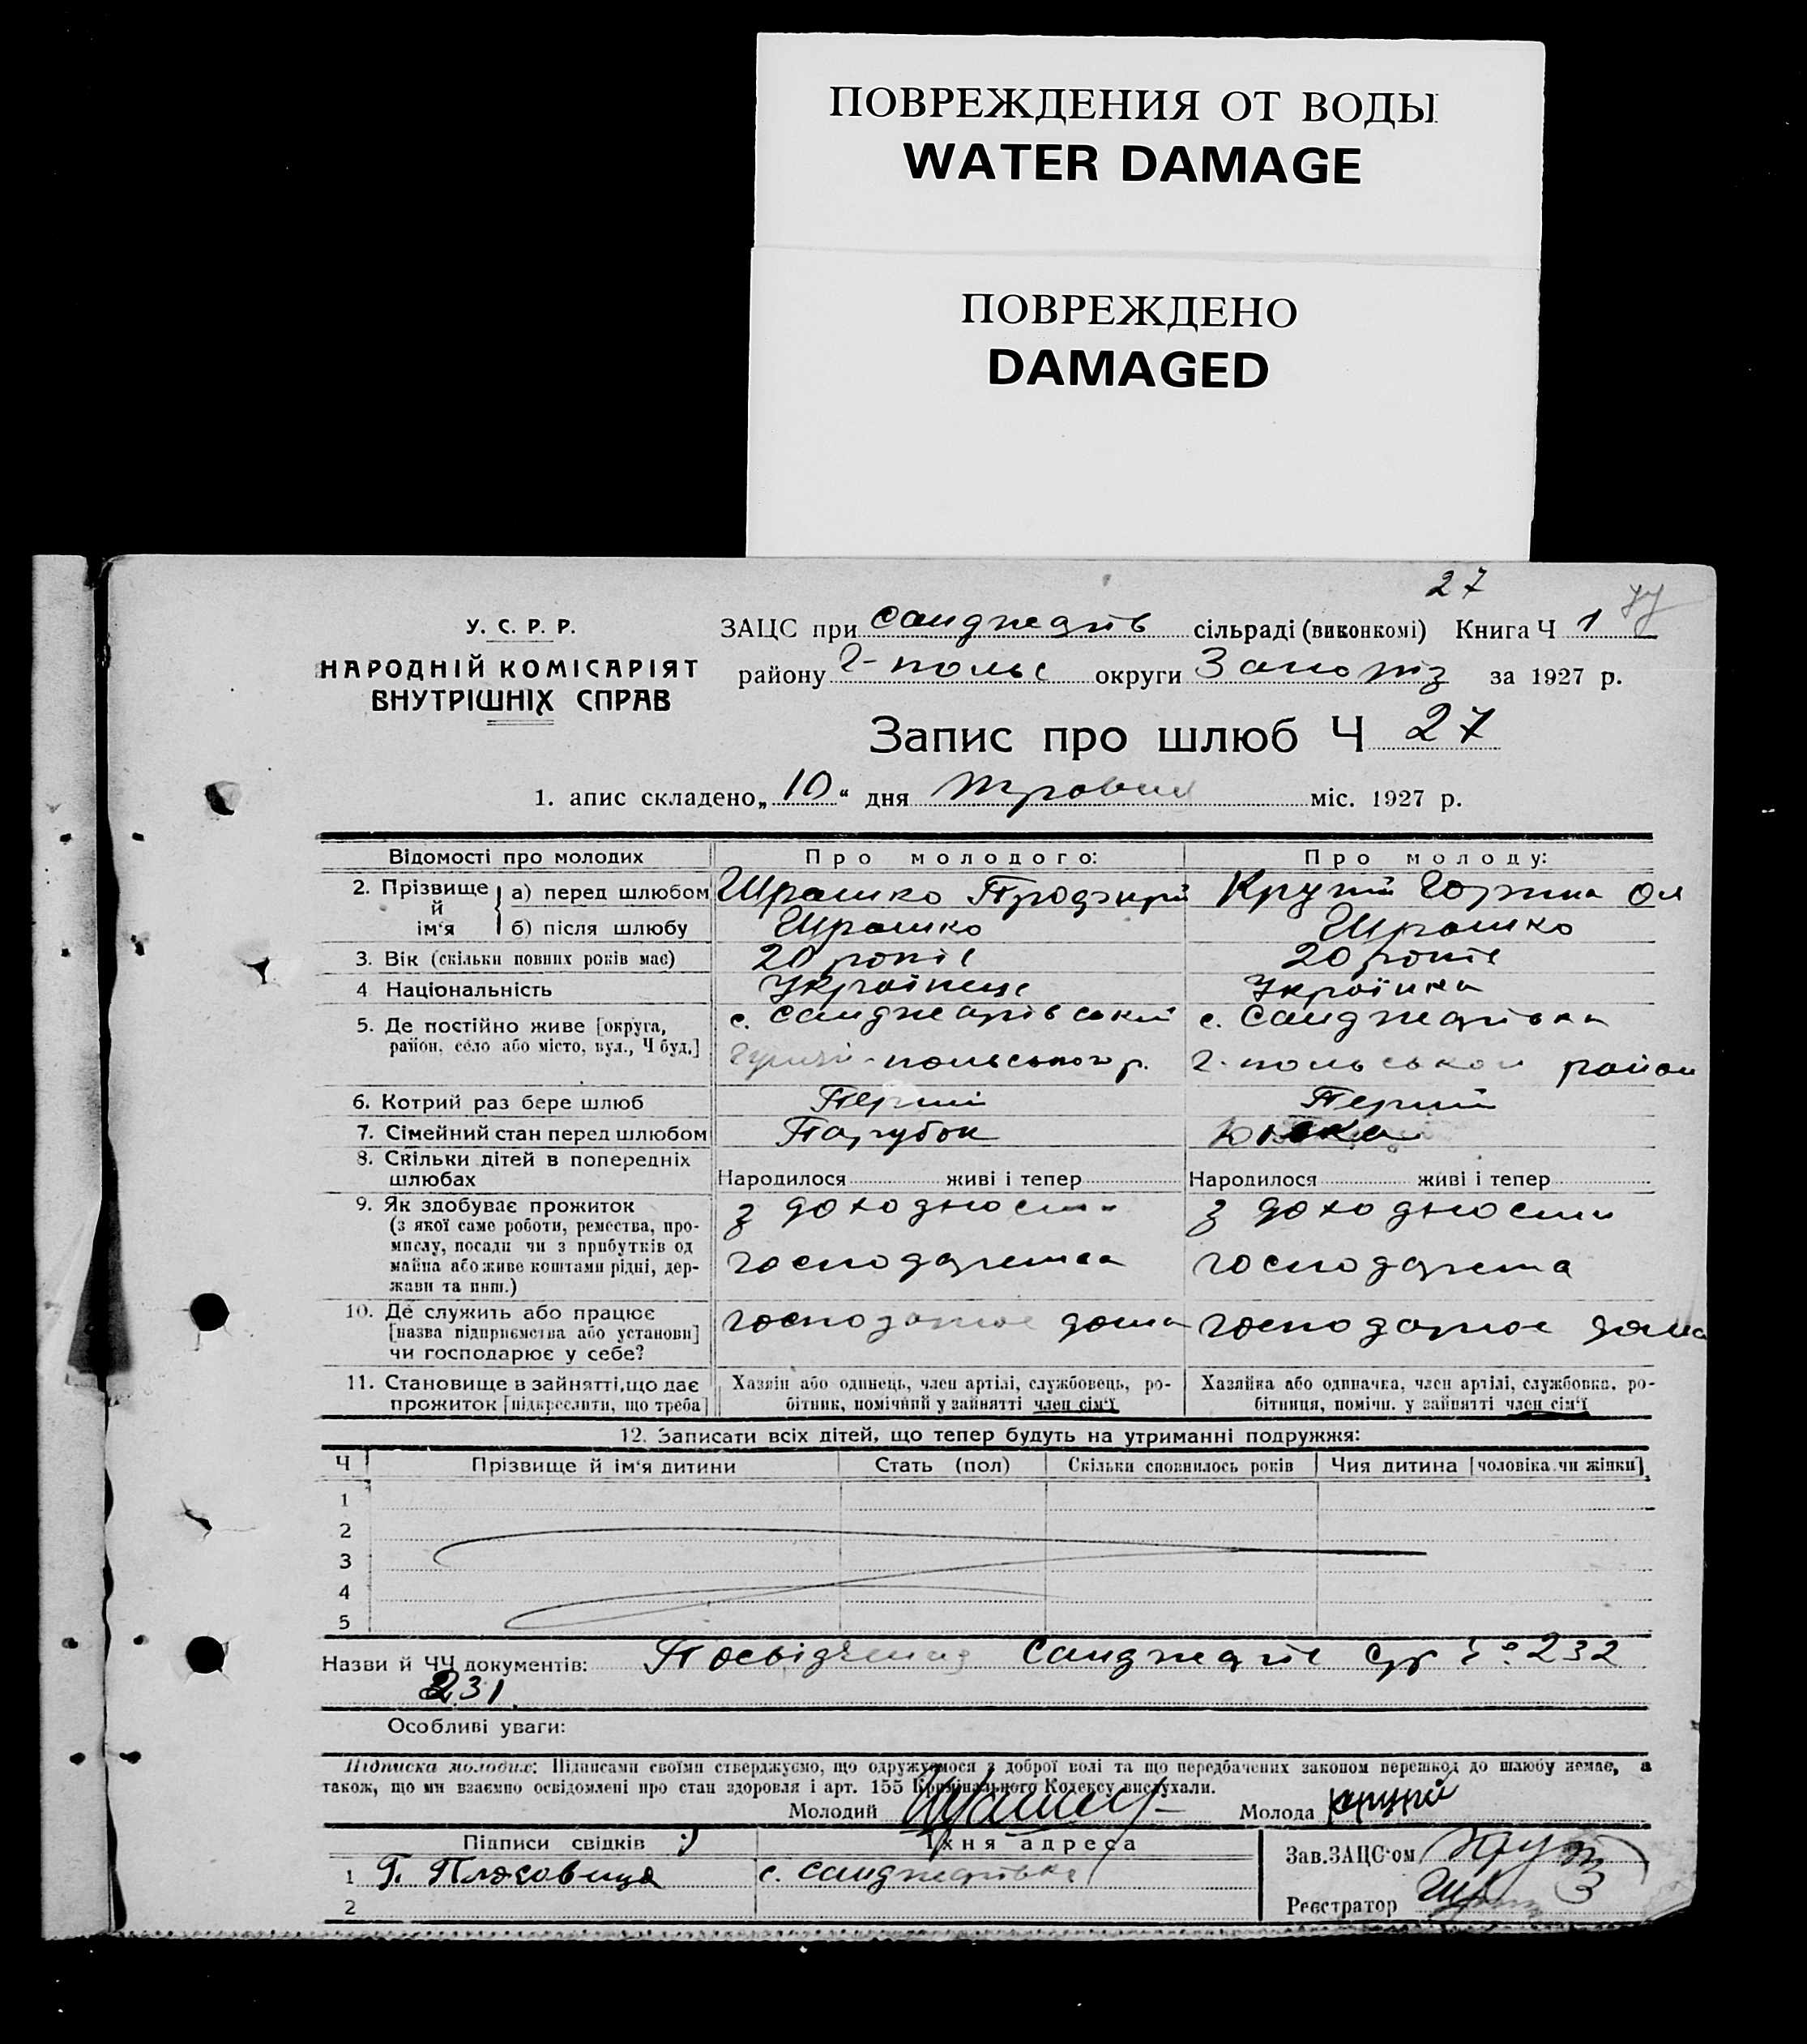 ПОВРЕЖДЕНИЯ ОТ ВОДЫ
WATER DAMAGE
ПОВРЕЖДЕНО
DAMAGED
27
У. С. Р. Р.
НАРОДНІЙ КОМІСАРІЯТ
ВНУТРІШНІХ СПРАВ
ЗАЦС при Санджарів сільраді (виконкомі) Книга Ч 1
району Г-польс округи Запоріз за 1927 р.
Запис про шлюб Ч 27
1. апис складено „10“ дня травня міс. 1927 р.
Відомості про молодих Про молодого: Про молоду:
2. Прізвище й ім'я
а) перед шлюбом Ширашко Крутій
б) після шлюбу Ширашко Ширашко
3. Вік (скільки повних років має) 20 років 20 років
4 Національність Українец Українка
5. Де постійно живе [округа, район, село або місто, вул., Ч буд.]
с. Санджарівській -польського р.
с. Санджарівка Г-польськой район
6. Котрий раз бере шлюб Перший Перший
7. Сімейний стан перед шлюбом Парубок
8. Скільки дітей в попередніх шлюбах
Народилося живі і тепер Народилося живі і тепер
9. Як здобуває прожиток
(з якої саме роботи, ремества, про-
мислу, посади чи з прибутків од
майна або живе коштами рідні, дер-
жави та инш.)
з доходности господарства
з доходности господарства
10. Де служить або працює
[назва підприємства або установи]
чи господарює у себе?
господарює дома господарює дома
11. Становище в зайнятті, що дає
прожиток [підкреслити, що треба]
Хазяїн або одинець, член артілі, службовець, ро-
бітник, помічний у зайнятті член сім'ї
Хазяйка або одиначка, член артілі, службовка, ро-
бітниця, помічн. у зайнятті член сім'ї
12. Записати всіх дітей, що тепер будуть на утриманні подружжя:
Ч Прізвище й ім'я дитини Стать (пол) Скільки сповнилось років Чия дитина [чоловіка чи жінки]
1
2
3
4
5
Назви й ЧЧ документів: Посвідчення Санджарів с/р № 232
231.
Особливі уваги:
Підписка молодих: Підписами своїми стверджуємо, що одружуємося з доброї волі та що передбачених законом перешкод до шлюбу немає, а
також, що ми взаємно освідомлені про стан здоровля і арт. 155 Кримінального Кодексу вислухали.
Молодий Молода Крутій
Підписи свідків Їхня адреса
1 с. Санджарівка
2
Зав. ЗАЦС'ом
Реєстратор